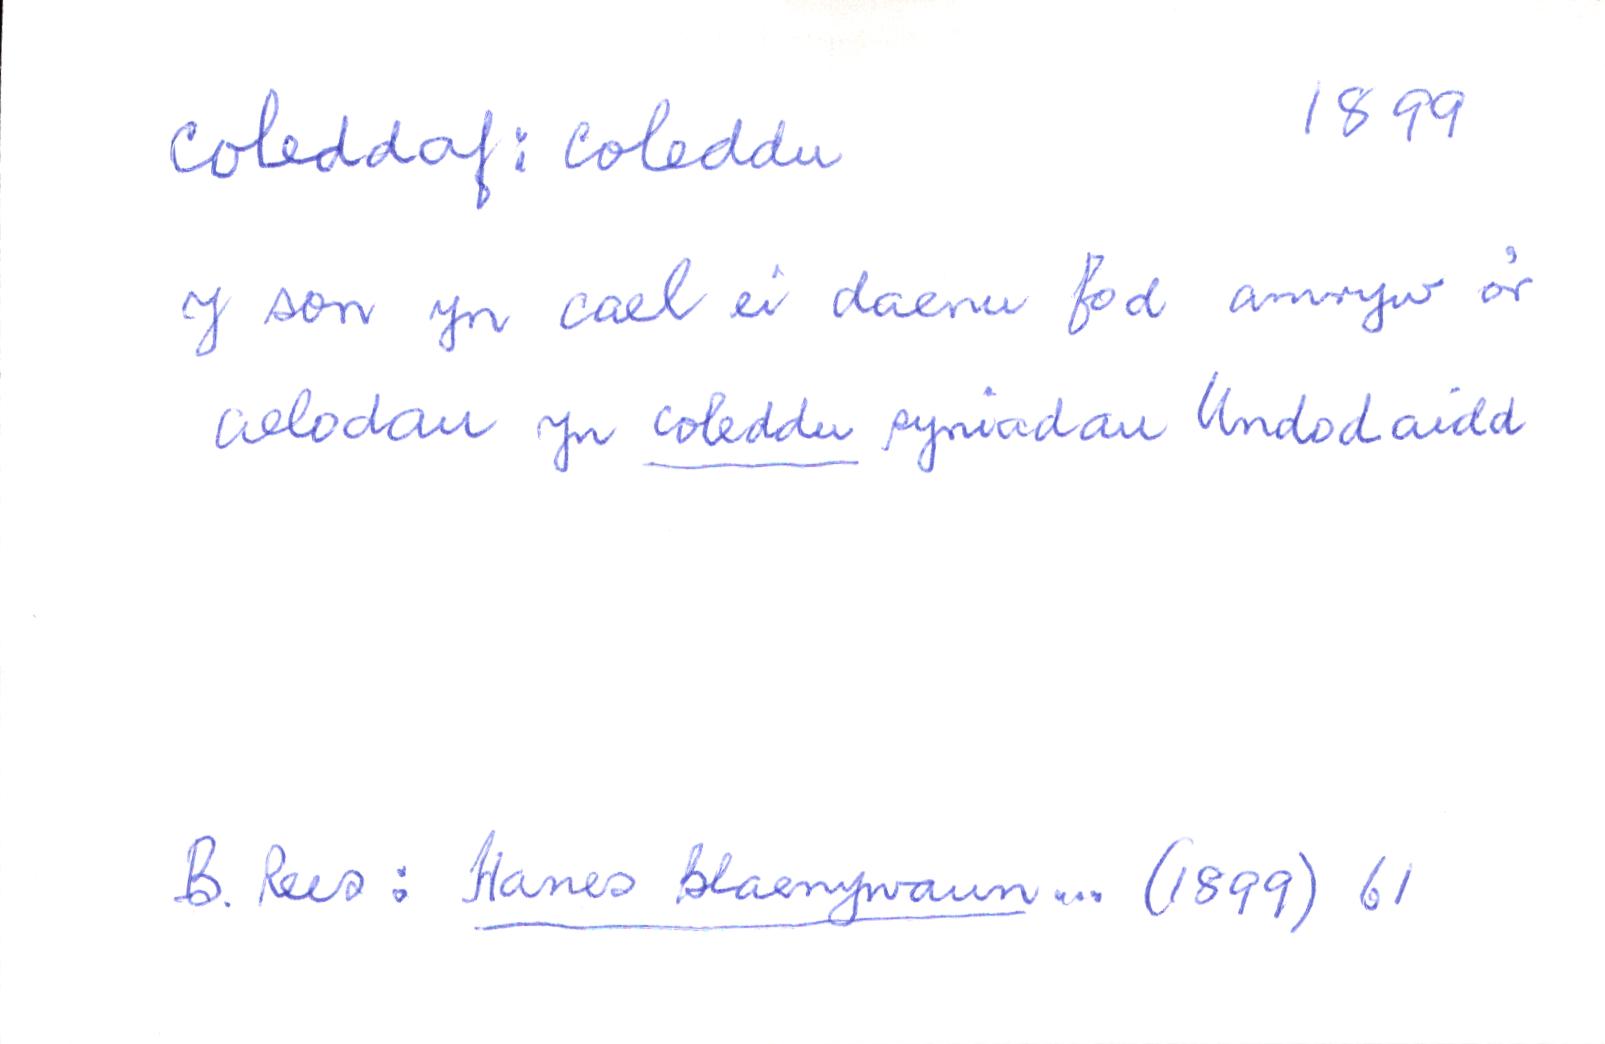 coleddaf: coleddu 1899
y son yn cael ei daenu fod amryw o'r
aelodau yn coleddu syniadau Undodaidd
B. Rees: Hanes Blaenywaun... (1899) 61